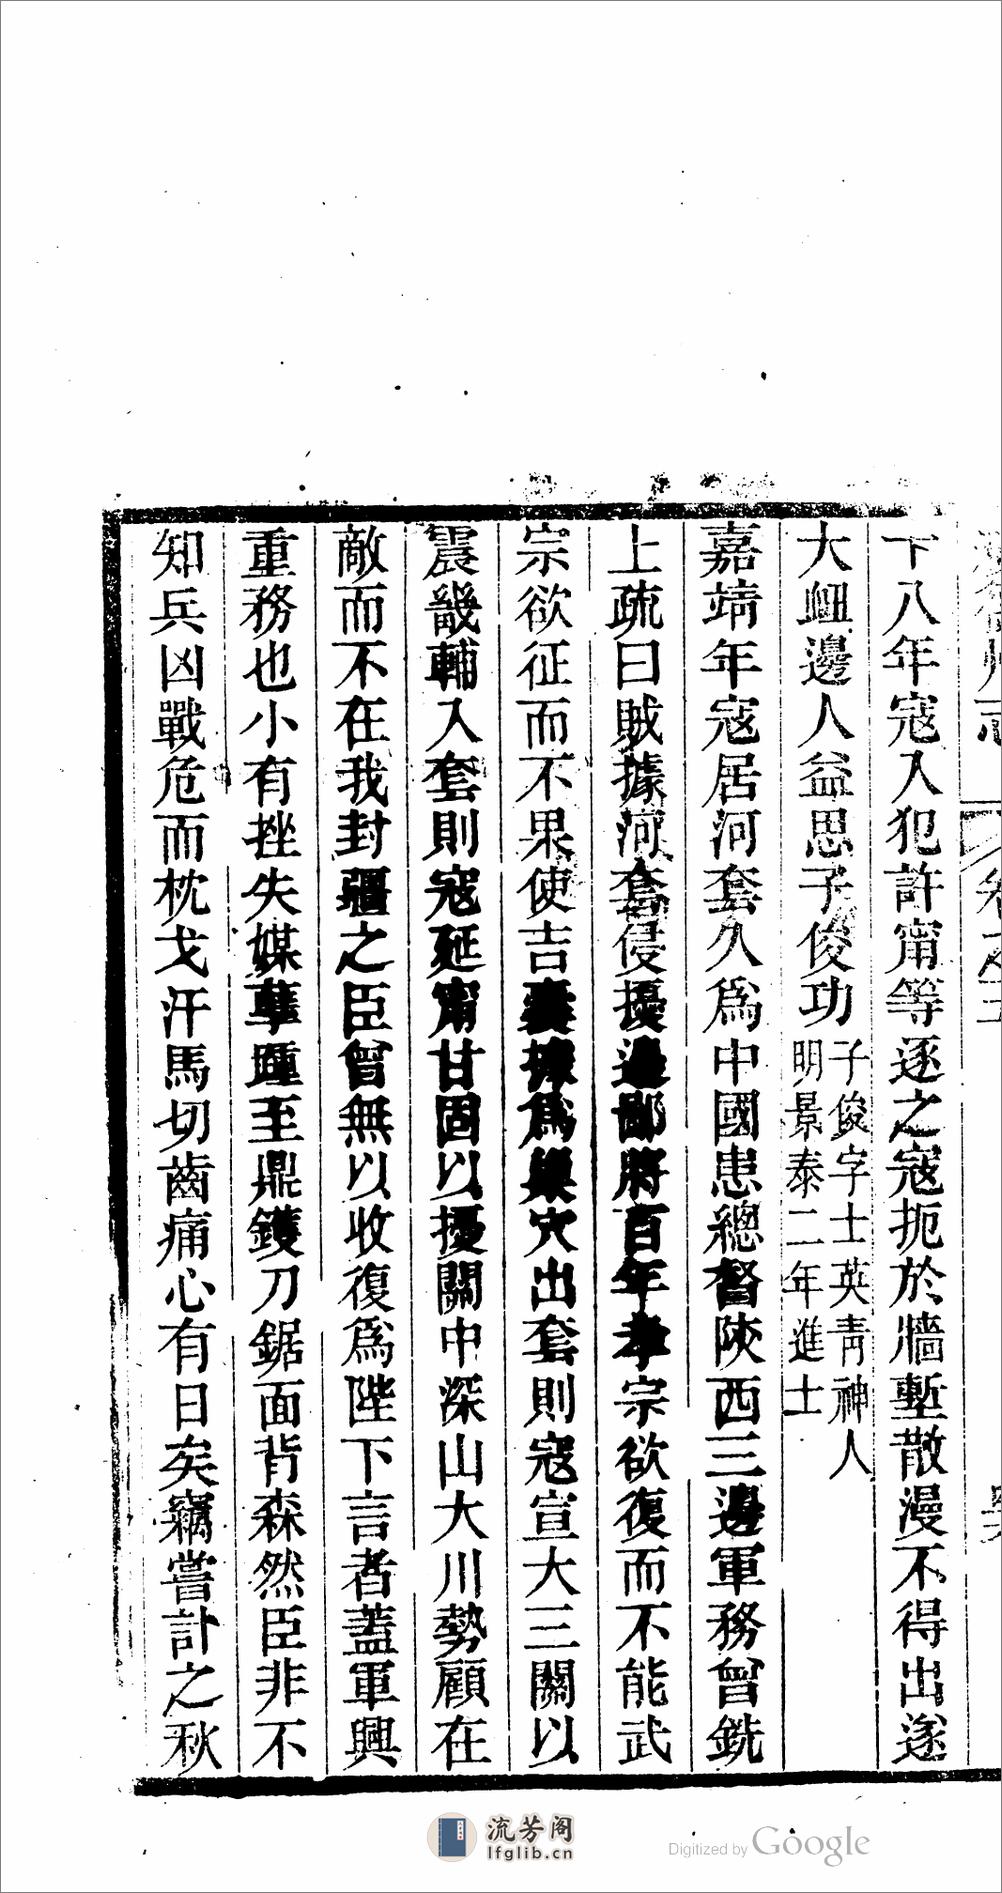 下八年寇入犯許甯等逐之寇扼於牆塹散漫不得出遂
大衂邊人益思子俊功
子俊字士英青神人
明景泰二年進士
嘉靖年寇居河套久爲中國患總督陝西三邊軍務曾銑
上疏曰賊據河套侵擾邊鄙將百年孝宗欲復而不能武
宗欲征而不果使吉囊據爲巢穴出套則寇宣大三關以
震畿輔入套則寇延甯甘固以擾關中深山大川勢顧在
敵而不在我封疆之臣曾無以收復爲陛下言者蓋軍興
重務也小有挫失媒孽踵至鼎鑊刀鋸面背森然臣非不
知兵凶戰危而枕戈汗馬切齒痛心有日矣竊嘗計之秋
流芳阁
lfglib.cn
Digitized by Google